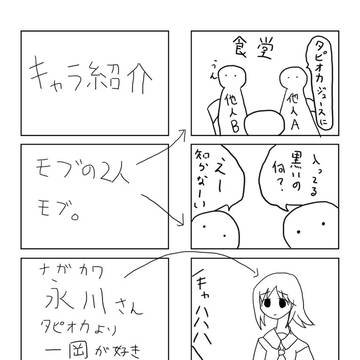 食堂
タピオカジュースに
他人A
うん
他人B
入ってる
黒いの
何?
えー
知らなーい
キャハハハ
キャラ紹介
モブの2人
モブ。
ナガカワ
永川さん
タピオカより
一岡が好き